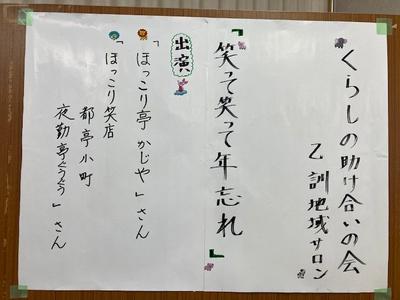 くらしの助け合いの会
乙訓地域サロン
『笑って笑って年忘れ』
出演
「ほっこり亭 かじや」さん
「ほっこり笑店
都亭小町
夜勤亭ぐうぐう」さん